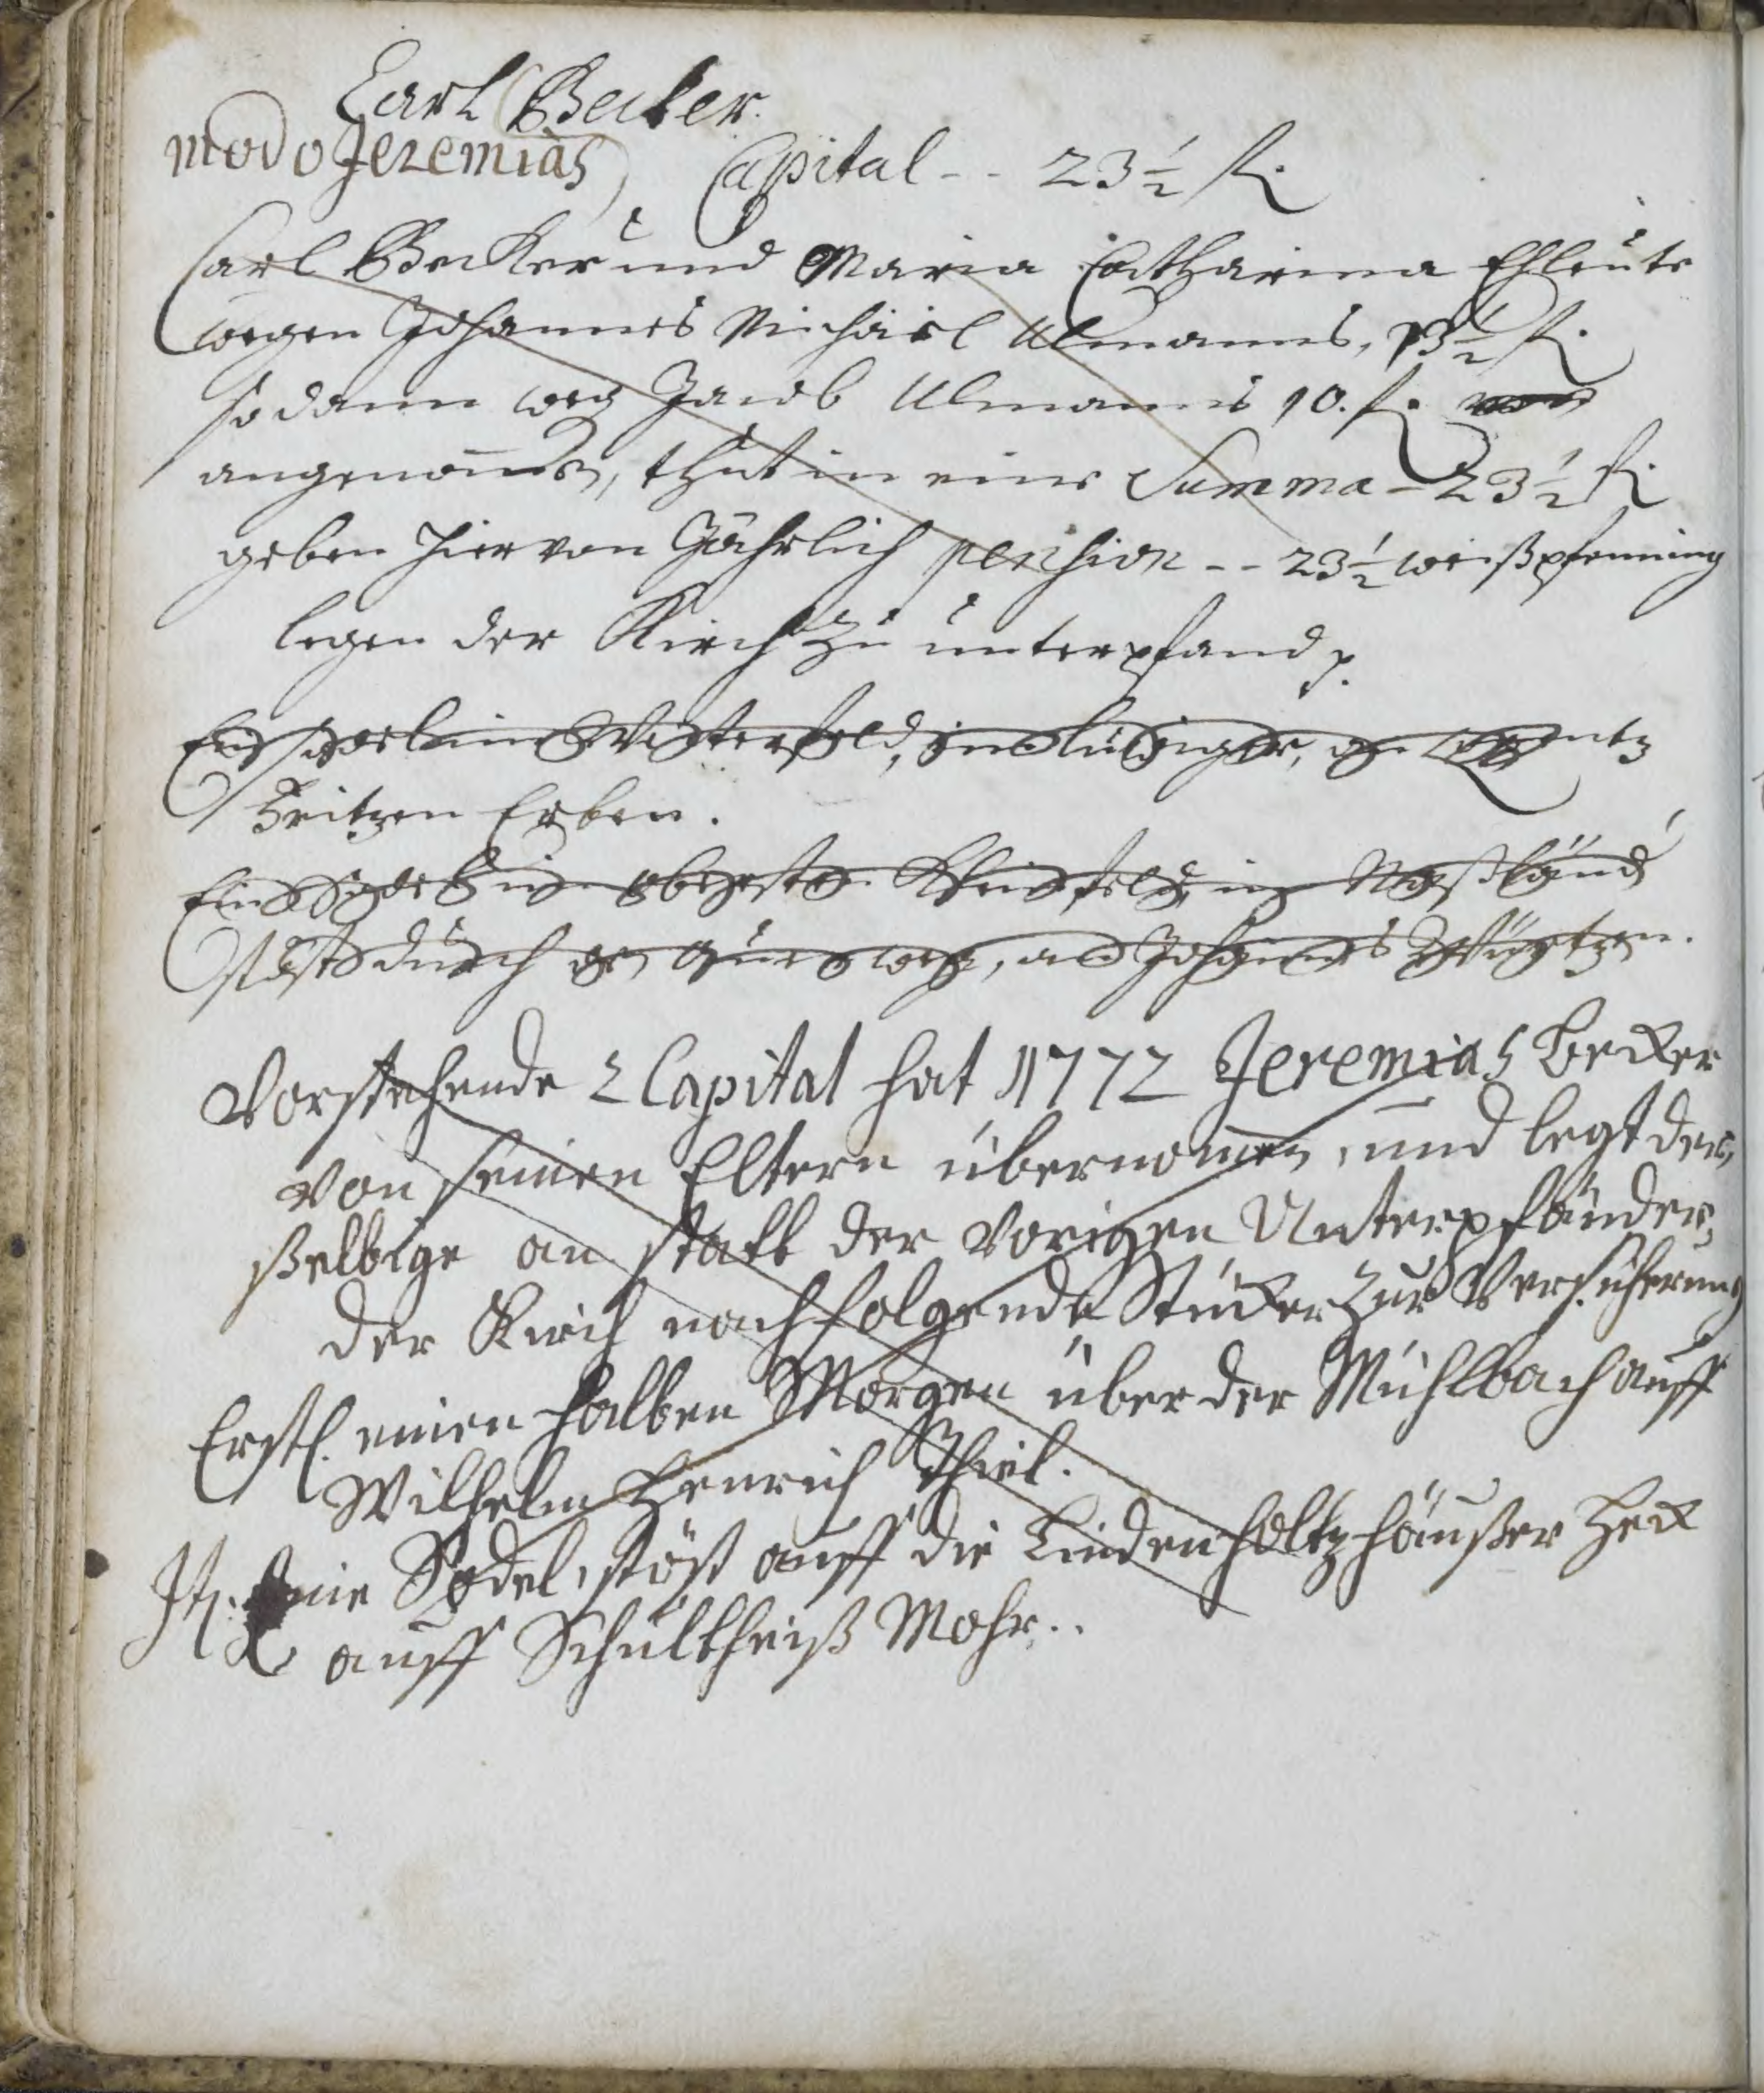 Carl Becker.
modo Jeremias Capital -- 23 1/2 fl.
Carl Becker und Maria Catharina Ehleute
wegen Johannes Michäel Ulmanns, 13 1/2 fl.
sodann weg Jacob Ulmanns 10. fl.
angenom̄en, thut in einer Summa - 23 1/2 fl.
geben hiervon Jährlich pension -- 23 1/2 weißpfenning
legen der Kirch zu unterpfand p.
Ein sodel im
Seitzen Erben.
Ein Sodel im obersten
stöst durch den weg, an Johannes
Vorstehende 2 Capital hat 1772 Jeremias Becker
von seinen Eltern übernom̄en, und legt der,
ßelbige an statt der vorigen Unterpfänder,
der Kirch nachfolgende Stücker zur Versicherung
Erstl. einen halben Morgen über der Mühlbach auff
Wilhelm Henrich Thiel.
It. eine Sodel, stöst auff die Lindenholtzhäußer Heck
auff Schultheiß Mohr..